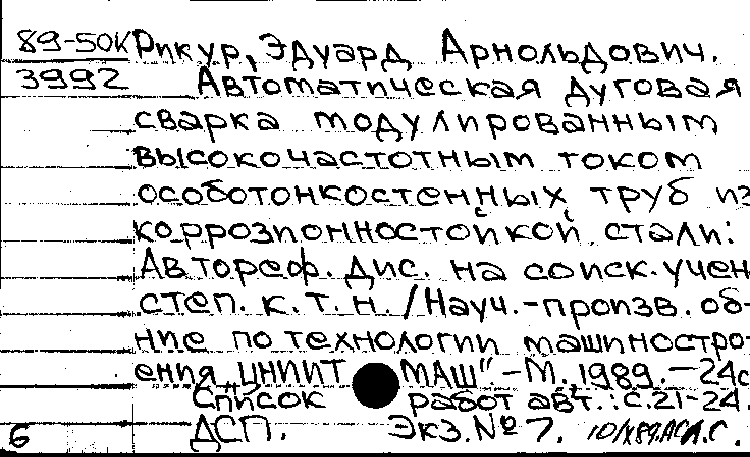 89-50К Рикур, Эдуард Арнольдович.
3992 Автоматическая дуговая
сварка модулированным
высокочастотным током
особотонкостенных труб из
коррозионностойкой стали:
Автореф. дис. на соиск. учен
степ. к. т. н. / Науч.-произв. об-
ние по технологии машиностро-
ения „ЦНИИТМАШ". - М., 1989. - 24с
Список работ авт.: с. 21-24.
6 ДСП. Экз. № 7.